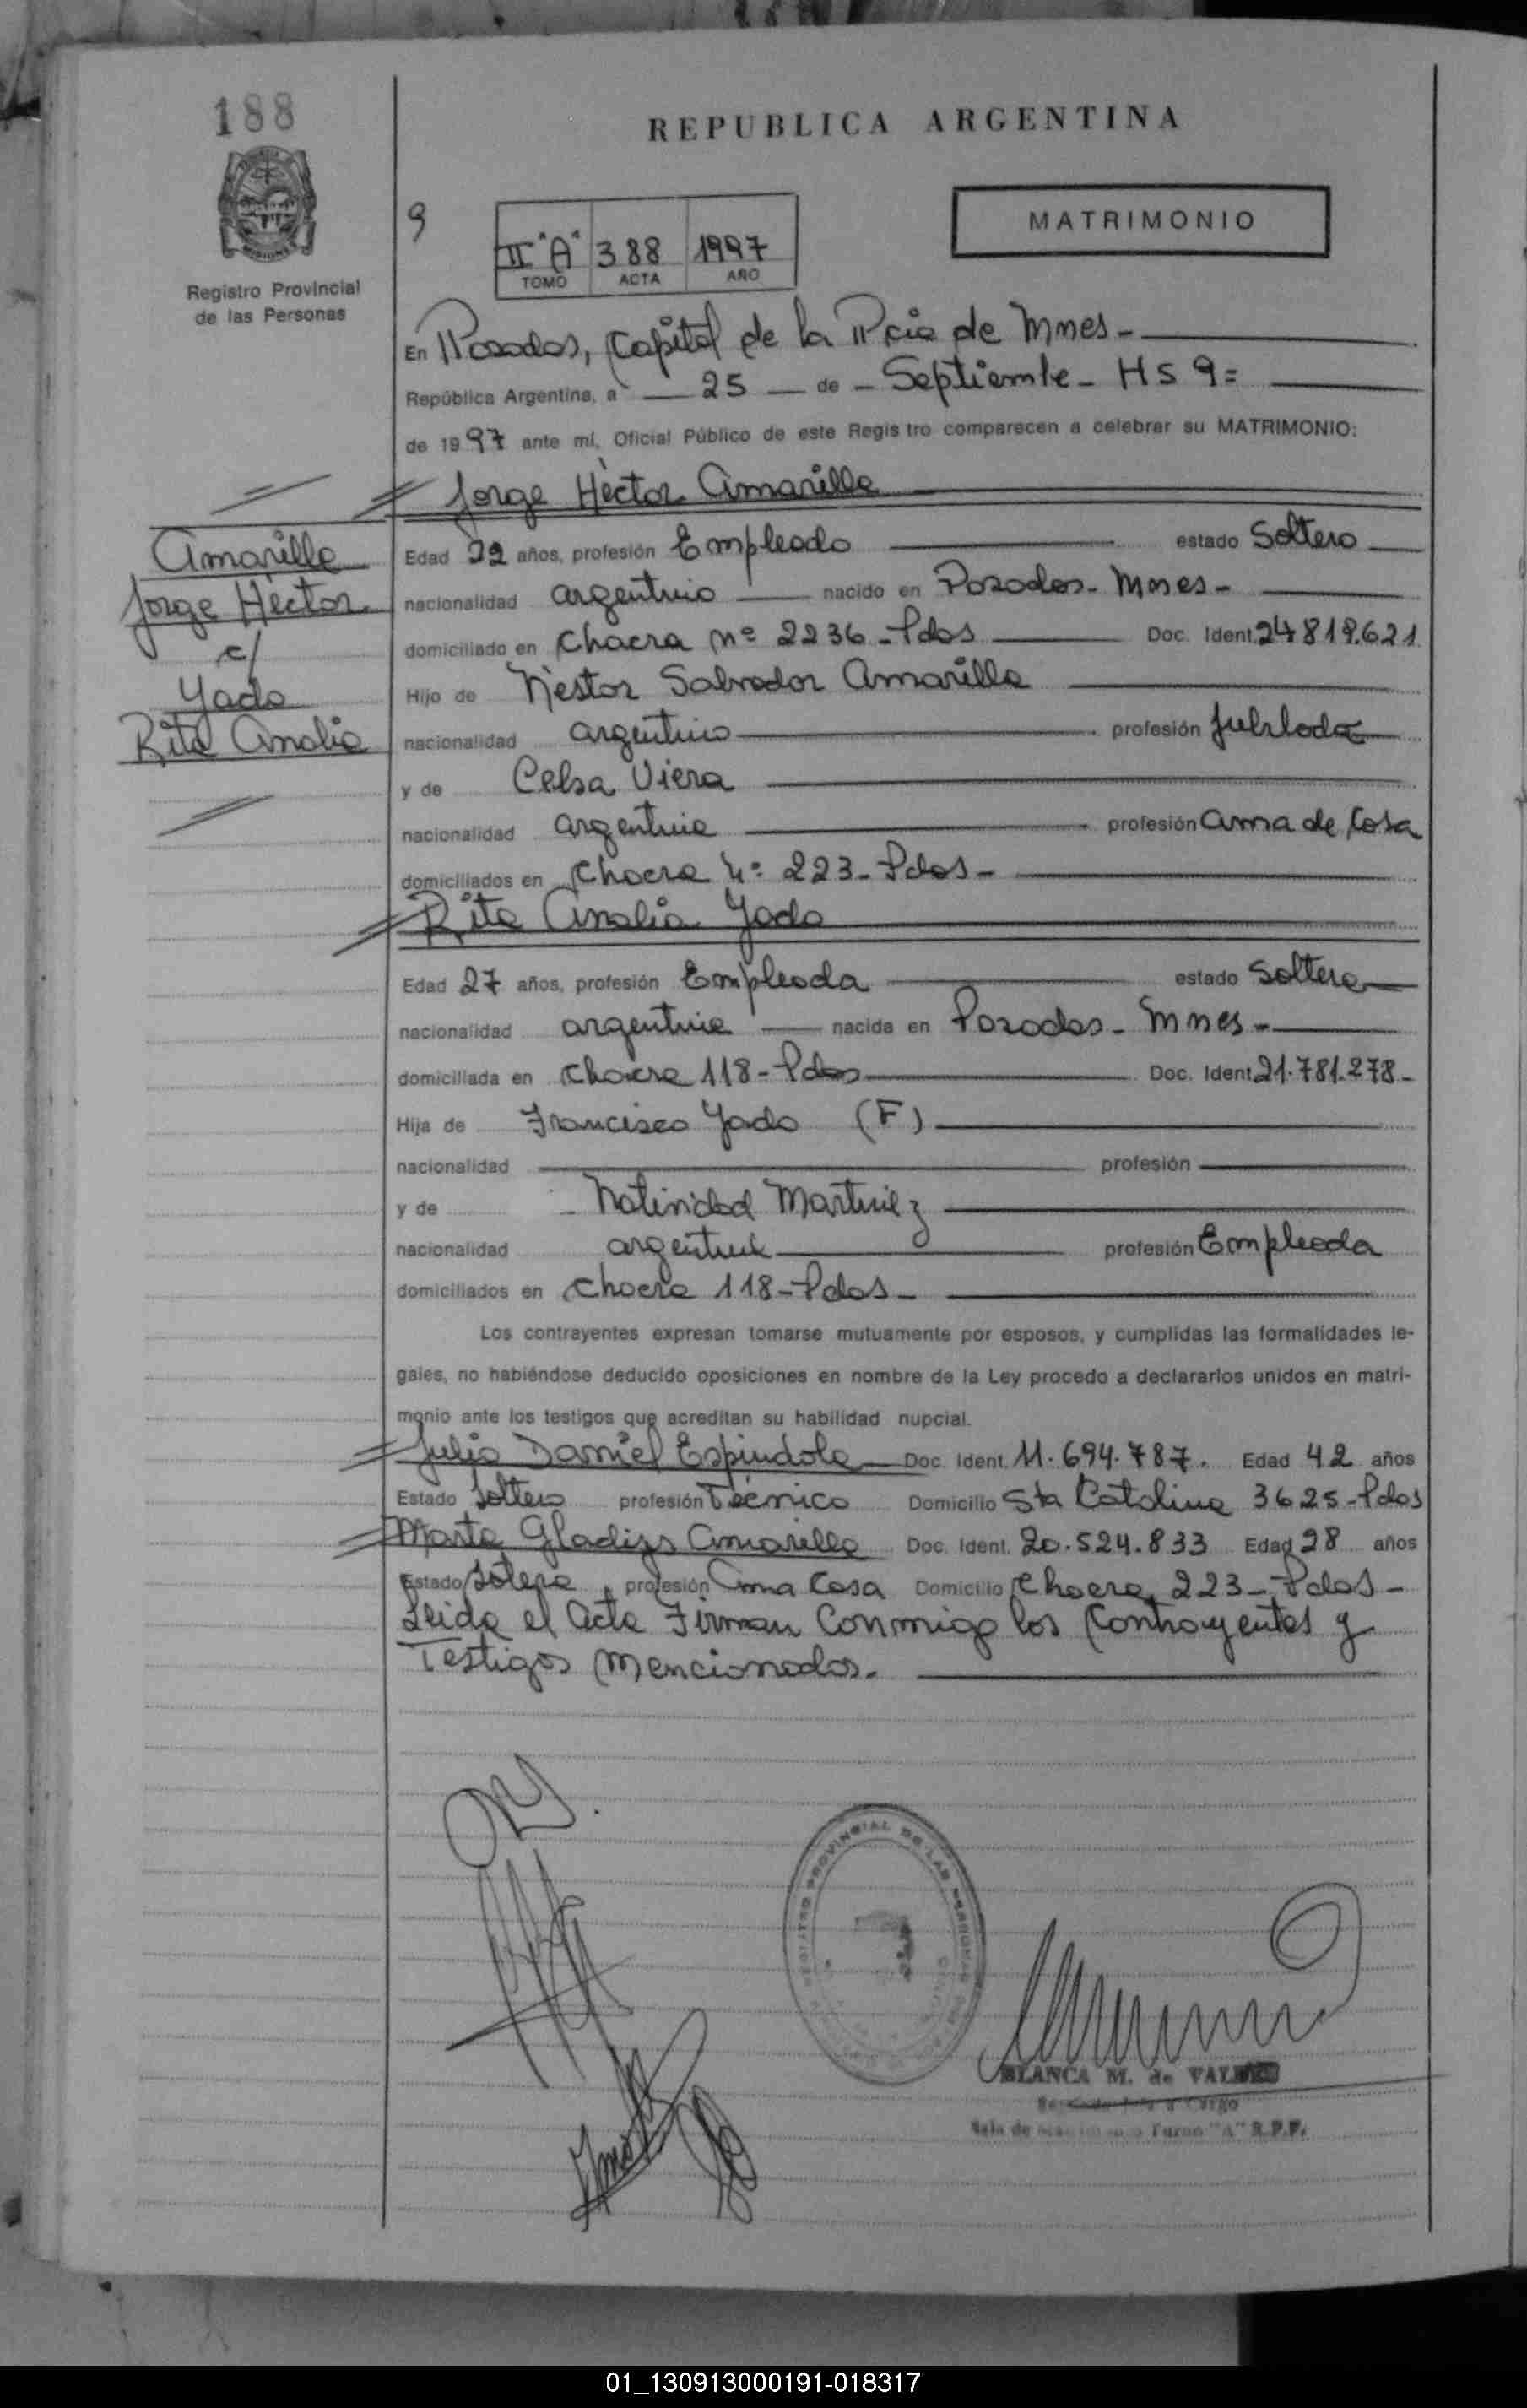 188
REPUBLICA ARGENTINA
9
MATRIMONIO
II "A" 388 1997
TOMO ACTA AÑO
Registro Provincial
de las Personas
En Posadas, Capital de la Pcia de Mnes-
República Argentina, a 25 de - Septiembre - Hs 9=
de 1997 ante mí, Oficial Público de este Registro comparecen a celebrar su MATRIMONIO:
Jorge Héctor Amarilla
Amarilla
Jorge Héctor
c/
Yado
Rita Analia
Edad 22 años, profesión Empleado estado Soltero
nacionalidad argentino nacido en Posadas- Mnes-
domiciliado en Chacra nº 2236 - Pdas Doc. Ident. 24.819.621
Hijo de Néstor Salvador Amarilla
nacionalidad argentino profesión
y de Celsa Viera
nacionalidad argentina profesión ama de Casa
domiciliados en Chacra Nº 223- Pdas-
Rita Analia Yado
Edad 27 años, profesión Empleada estado Soltera
nacionalidad argentina nacida en Posadas- Mnes-
domiciliada en Chacra 118- Pdas Doc. Ident. 21.781.278-
Hija de Francisco Yado (F)
nacionalidad profesión
y de Natividad Martinez
nacionalidad argentina profesión Empleada
domiciliados en Chacra 118- Pdas-
Los contrayentes expresan tomarse mutuamente por esposos, y cumplidas las formalidades le-
gales, no habiéndose deducido oposiciones en nombre de la Ley procedo a declararlos unidos en matri-
monio ante los testigos que acreditan su habilidad nupcial.
Julio Daniel Espindola Doc. Ident. 11.694.787. Edad 42 años
Estado Soltero profesión Técnico Domicilio Sta Catalina 3625-Pdas
Marta Gladizs Amarilla Doc. Ident. 20.524.833 Edad 28 años
Estado Sotera profesión Ama Casa Domicilio Chacra 223- Pdas-
Leida el Acta Firman Conmigo los Contrayentes y
Testigos Mencionados.
BLANCA M. de
01_130913000191-018317